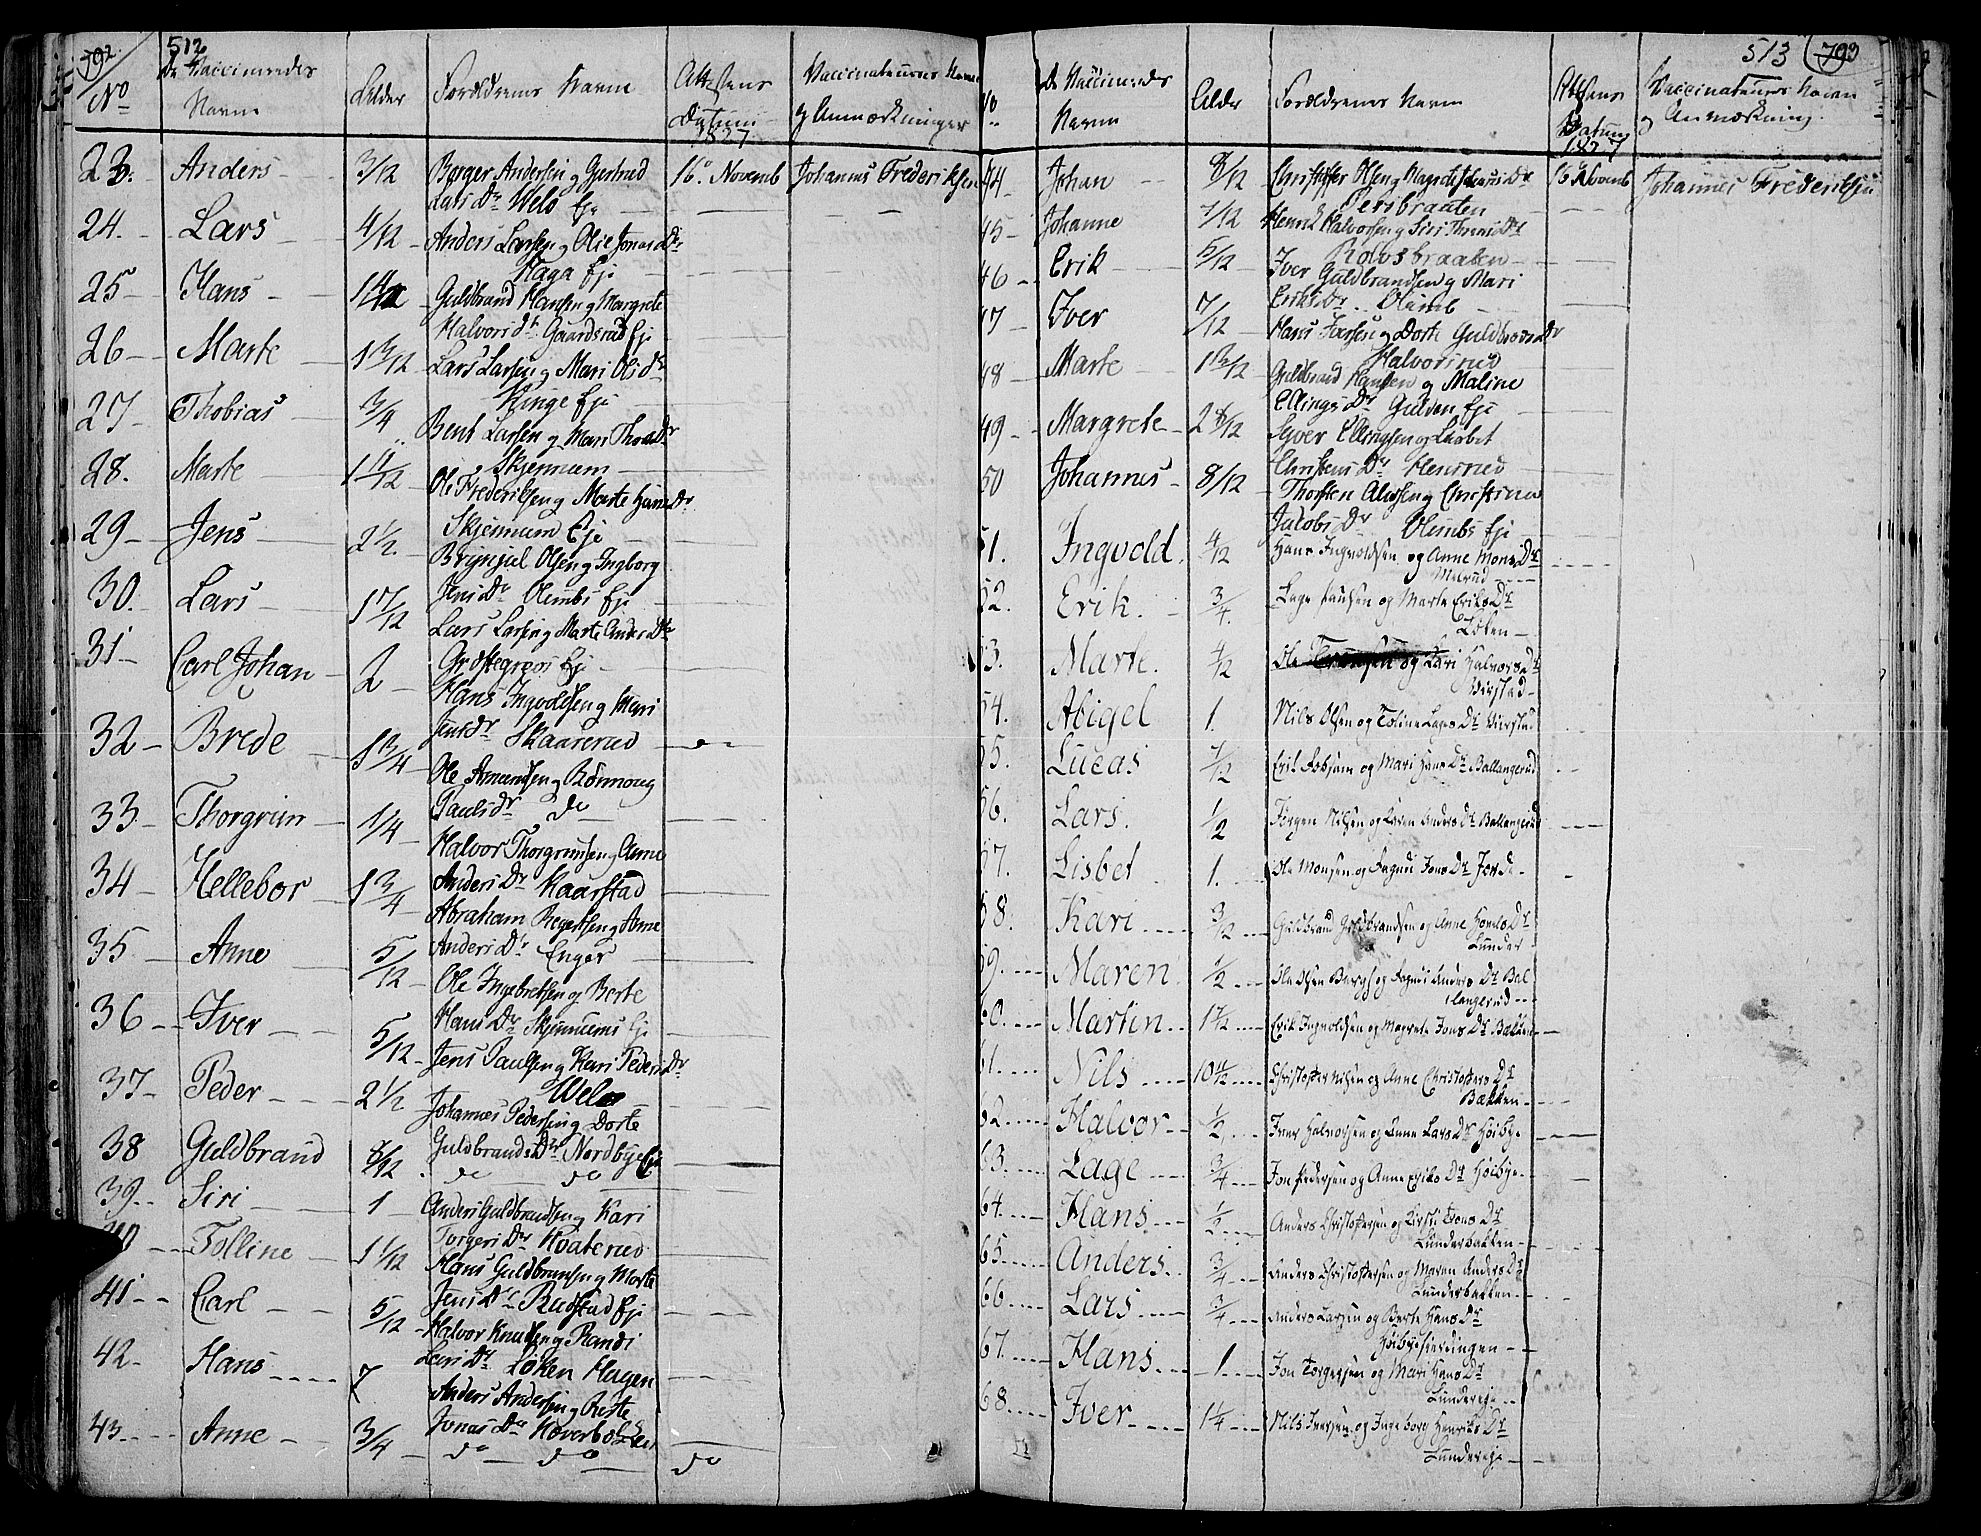 792. 512
No De Vaccineredes Navne Alder Forældrenes Navne Attestens Datum 1827 Vaccinateurens Navn og Anmærkninger
23. Anders 3/12 Børger Andersen og Gertrud 16de Novemb Johannes Frederiksen
Lars Dr Welo Eje
24. Lars 4/12 Anders Larsen og Olie Jonas Dr
Haga Eje
25 Hans Guldbrand Hansen og Margrete
Halvors dr Gaardsrud Eje
26 Marte 1 3/12 Lars Larsen og Mari Ols dr
Ringe Eje
27 Thobias 3/4 Bent Larsen og Mari Thoes dr
Skjennum
28. Marte 1 11/12 Ole Frederiksen og Marte Hans Dr
Skjennum Eje
29 Jens 2 1/2 Brynjul Olsen og Ingborg
Jens dr Olimbs Eje
30. Lars 1 7/12 Lars Larsen og Marte Anders Dr
Eje
31 Carl Johan 2 Hans Ingvoldsen og Mari
Jens dr Skaarerud
32 Brede 1 3/4 Ole Amundsen og Rønnoug
Pauls dr do
33 Thorgrim 1/4 Halvor Thorgrimsen og Anne
Anders Dr Kaarstad
34 Hellebor 1 3/4 Abraham Regertsen og Anne
Anders Dr Enger
35 Anne 5/12 Ole Ingebretsen og Berte
Hans Dr Skjennums Eje
36 Iver 5/12 Jens Paulsen og Kari Peders Dr
Welo
37 Peder 2 1/2 Johannes Pedersen og Dorte
Guldbrands Dr Nordbye Eje
38 Guldbrand 8/12 do do
39 Siri 1 Anders Guldbrandsen og Kari
Torgers Dr Hoaterud
40 Tolline 1 1/12 Hans Guldbransen og Marte
Jens Dr Rudstad Eje
41 Carl 5/12 Halvor Knudsen og Randi
Lars Dr Løken Hagen
42 Hans 7 Anders Andersen og Berte
Jonas Dr
43 Anne 3/4 do do do
513 793
No De Vaccineredes Navne Alder Forældrenes Navn Attestens Datum 1827 Vaccinateurens Navn og Anmærkning.
44 Johan 8/12 Christoffer Olsen og Magrete Dr 16 Novemb Johannes Frederiksen
Persbraaten
45 Johanne 7/12 Henrik Halvorsen og Siri Dr
Rolvsbraaten
46 Erik 5/12 Iver Guldbrandsen og Mari
Eriks Dr Olimb
47 Iver 7/12 Hans Iversen og Dorte Guldbrands Dr
Halvorsrud
48 Marte 1 3/12 Guldbrand Hansen og Maline
Ellings Dr Gulden Eje
49 Margrete 2 8/12 Syver Ellingsen og Lisbet
Christens Dr
50 Johannes 8/12 Thorsten Alersen og Christine
Jacobs Dr Olimbs Eje
51. Ingvold 4/12 Hans Ingvoldsen og Anne Mons Dr
52. Erik 3/4 Lage Paulsen og Marte Eriks Dr
Løken
53. Marte. Ole og Kari Halvors Dr
Virstad
54. Abigel 1. Nils Olsen og Toline Lages Dr Virstad
55. Lucas 7/12 Eril og Mari Hans Dr Ballangerud
56. Lars. 1/2 Jørgen Nilsen og Karen Anders Dr Ballangerud
57. Lisbet 1. Ole Monsen og Jons Dr
58. Kari 3/12 Guldbrand Guldbrandsen og Anne Dr
Lunder
59. Maren 1/2 Ole Olsen og Anders Dr Bal
langerud
60. Martin Erik Ingvoldsen og Magrete Jons Dr Bakken
61. Nils Christoffer Nilsen og Anne Christoffers Dr
Bakken
62. Halvor 1/2 Iver Halvorsen og Anne Lars Dr Høibye
63. Lage 3/4 Jon Pedersen og Anne Eriks Dr Høibye
64. Hans 1/2 Anders Christoffersen og Kirsti Jons Dr
Lunderbakken
65. Anders 3/4 Anders Christoffersen og Maren Anders Dr
Lunderbakken
66. Lars 3/4 Anders Larsen og Berte Hans Dr
67. Hans 1 Jon Torgersen og Mari Hans Dr
Lundereje
68. Iver 1 1/4 Nils Iversen og Ingeborg Henriks Dr
Lundereje